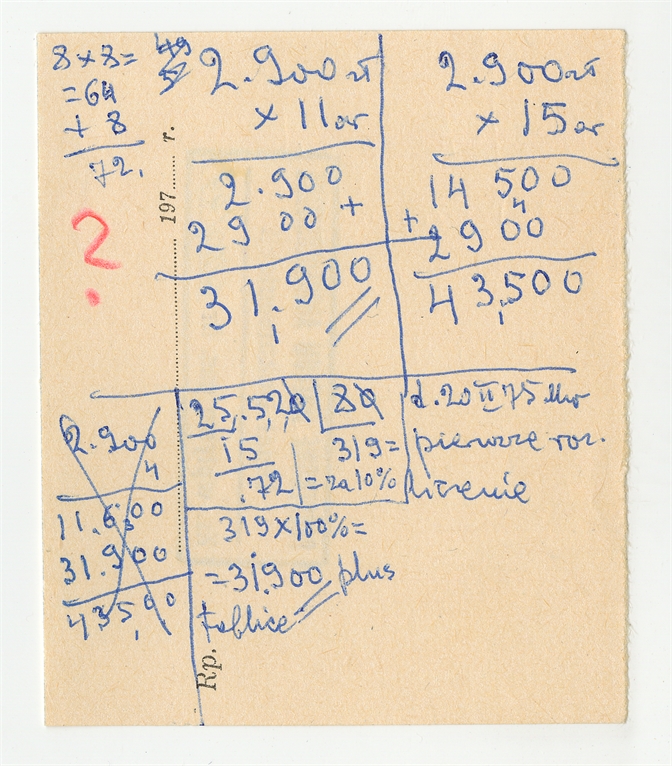 8 x 8 =
= 64
+ 8
72.
2.900 zł
x 11 ar
2.900
29 00 +
31,900
2.900 zł
x 15 ar
14 500
+ 29 00
43,500
197 r.
?
2.900
4
11.600
31.900
43 5,00
25,520 | 80
15
.72
319 =
= za 10%
319 x 100% =
= 31.900 plus
tablice
d. 20 II 75
pierwsze roz-
liczenie
Rp.